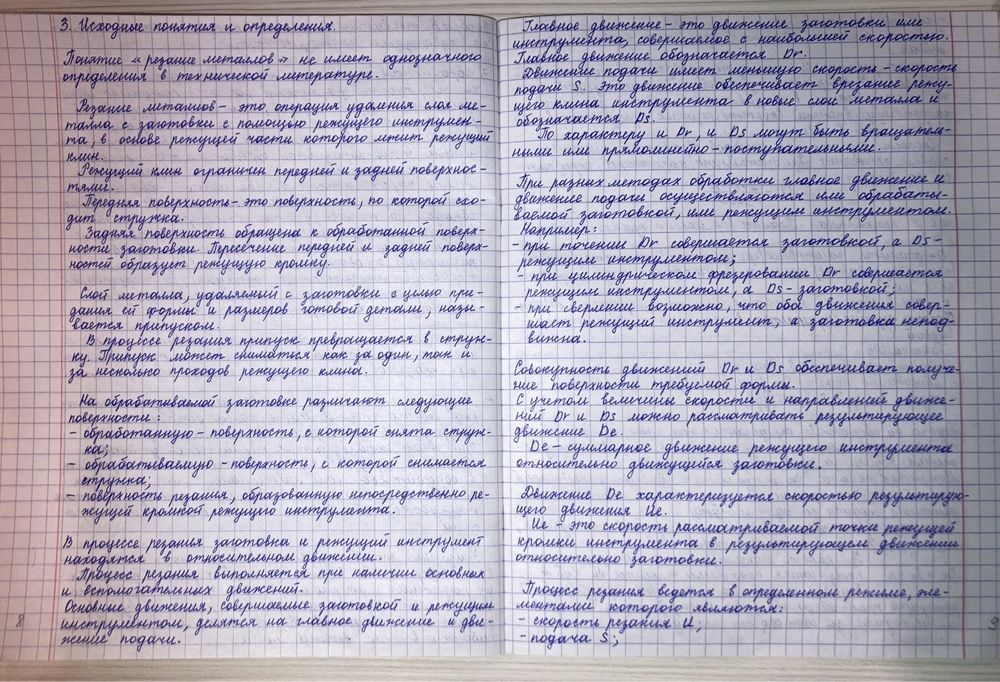 3. Исходные понятия и определения.
Понятие «резание металлов» не имеет однозначного
определения в технической литературе.
Резание металлов - это операция удаления слоя ме-
талла с заготовки с помощью режущего инструмен-
та, в основе режущей части которого лежит режущий
клин.
Режущий клин ограничен передней и задней поверхнос-
тями.
Передняя поверхность - это поверхность, по которой схо-
дит стружка.
Задняя поверхность обращена к обработанной поверх-
ности заготовки. Пересечение передней и задней поверх-
ностей образует режущую кромку.
Слой металла, удаляемый с заготовки с целью при-
дания ей формы и размеров готовой детали, назы-
вается припуском.
В процессе резания припуск превращается в струж-
ку. Припуск может сниматься как за один, так и
за несколько проходов режущего клина.
На обрабатываемой заготовке различают следующие
поверхности:
- обработанную - поверхность, с которой снята струж-
ка;
- обрабатываемую - поверхность, с которой снимается
стружка;
- поверхность резания, образованную непосредственно ре-
жущей кромкой режущего инструмента.
В процессе резания заготовка и режущий инструмент
находятся в относительном движении.
Процесс резания выполняется при наличии основных
и вспомогательных движений.
Основные движения, совершаемые заготовкой и режущим
инструментом, делятся на главное движение и дви-
жение подачи.
8
Главное движение - это движение заготовки или
инструмента, совершаемое с наибольшей скоростью.
Главное движение обозначается Dr.
Движение подачи имеет меньшую скорость - скорость
подачи S. Это движение обеспечивает врезание режу-
щего клина инструмента в новые слои металла и
обозначается Ds.
По характеру и Dr, и Ds могут быть вращатель-
ными или прямолинейно-поступательными.
При разных методах обработки главное движение и
движение подачи осуществляются или обрабаты-
ваемой заготовкой, или режущим инструментом.
Например:
- при точении Dr совершается заготовкой, а Ds -
режущим инструментом;
- при цилиндрическом фрезеровании Dr совершается
режущим инструментом, а Ds - заготовкой;
- при сверлении возможно, что оба движения совер-
шает режущий инструмент, а заготовка непод-
вижна.
Совокупность движений Dr и Ds обеспечивает получе-
ние поверхности требуемой формы.
С учетом величины скорости и направлений движе-
ний Dr и Ds можно рассматривать результирующее
движение De.
De - суммарное движение режущего инструмента
относительно движущейся заготовки.
Движение De характеризуется скоростью результирую-
щего движения Ue.
Ue - это скорость рассматриваемой точки режущей
кромки инструмента в результирующем движении
относительно заготовки.
Процесс резания ведется в определенном режиме, эле-
ментами которого являются:
- скорость резания U;
- подача S;
9